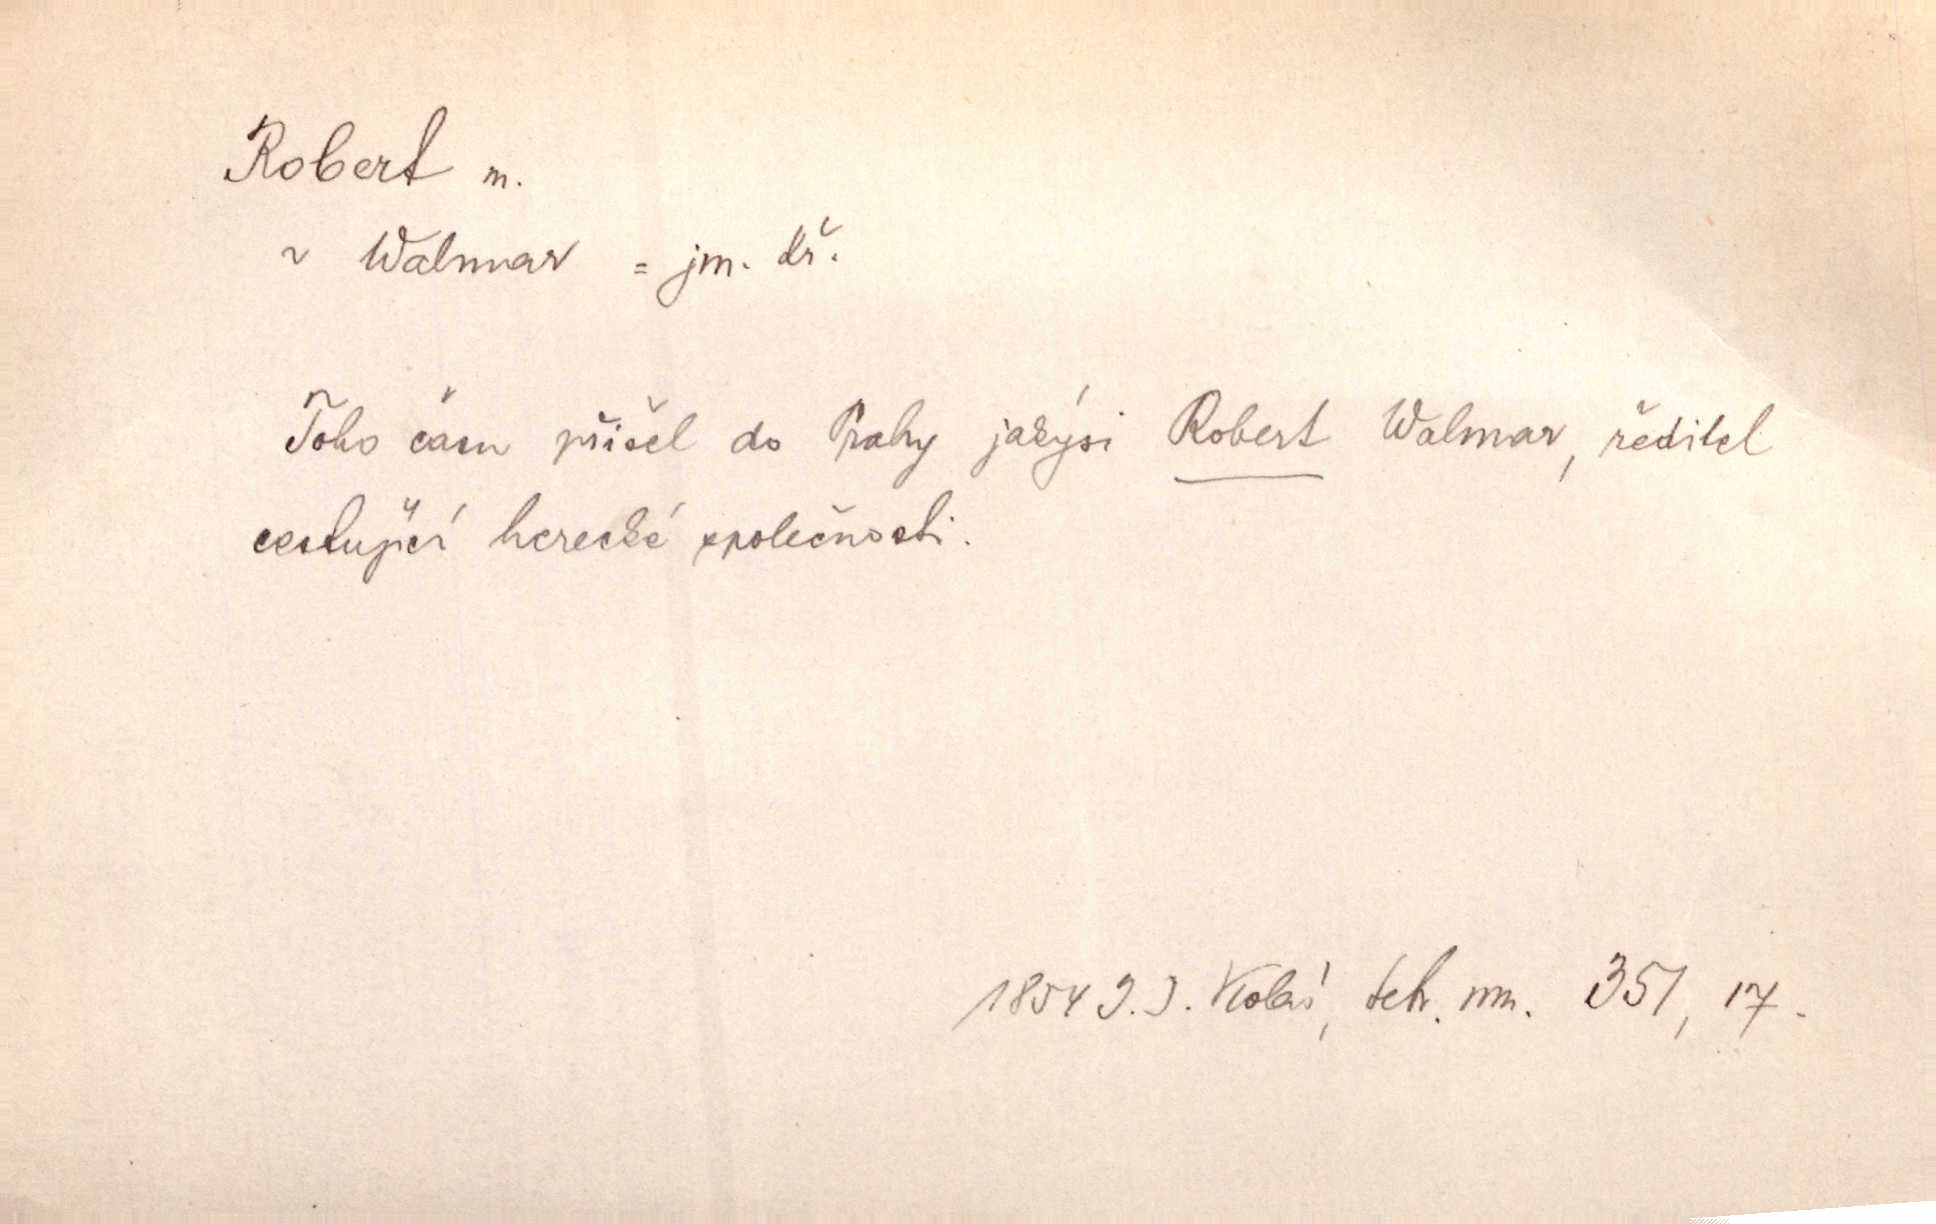 Robert m.
~ Walmar = jm. kř.
Toho času přišel do Prahy jakýsi Robert Walmar, ředitel
cestující herecké společnosti.
1854 J. J. Kolár, 351, 17.